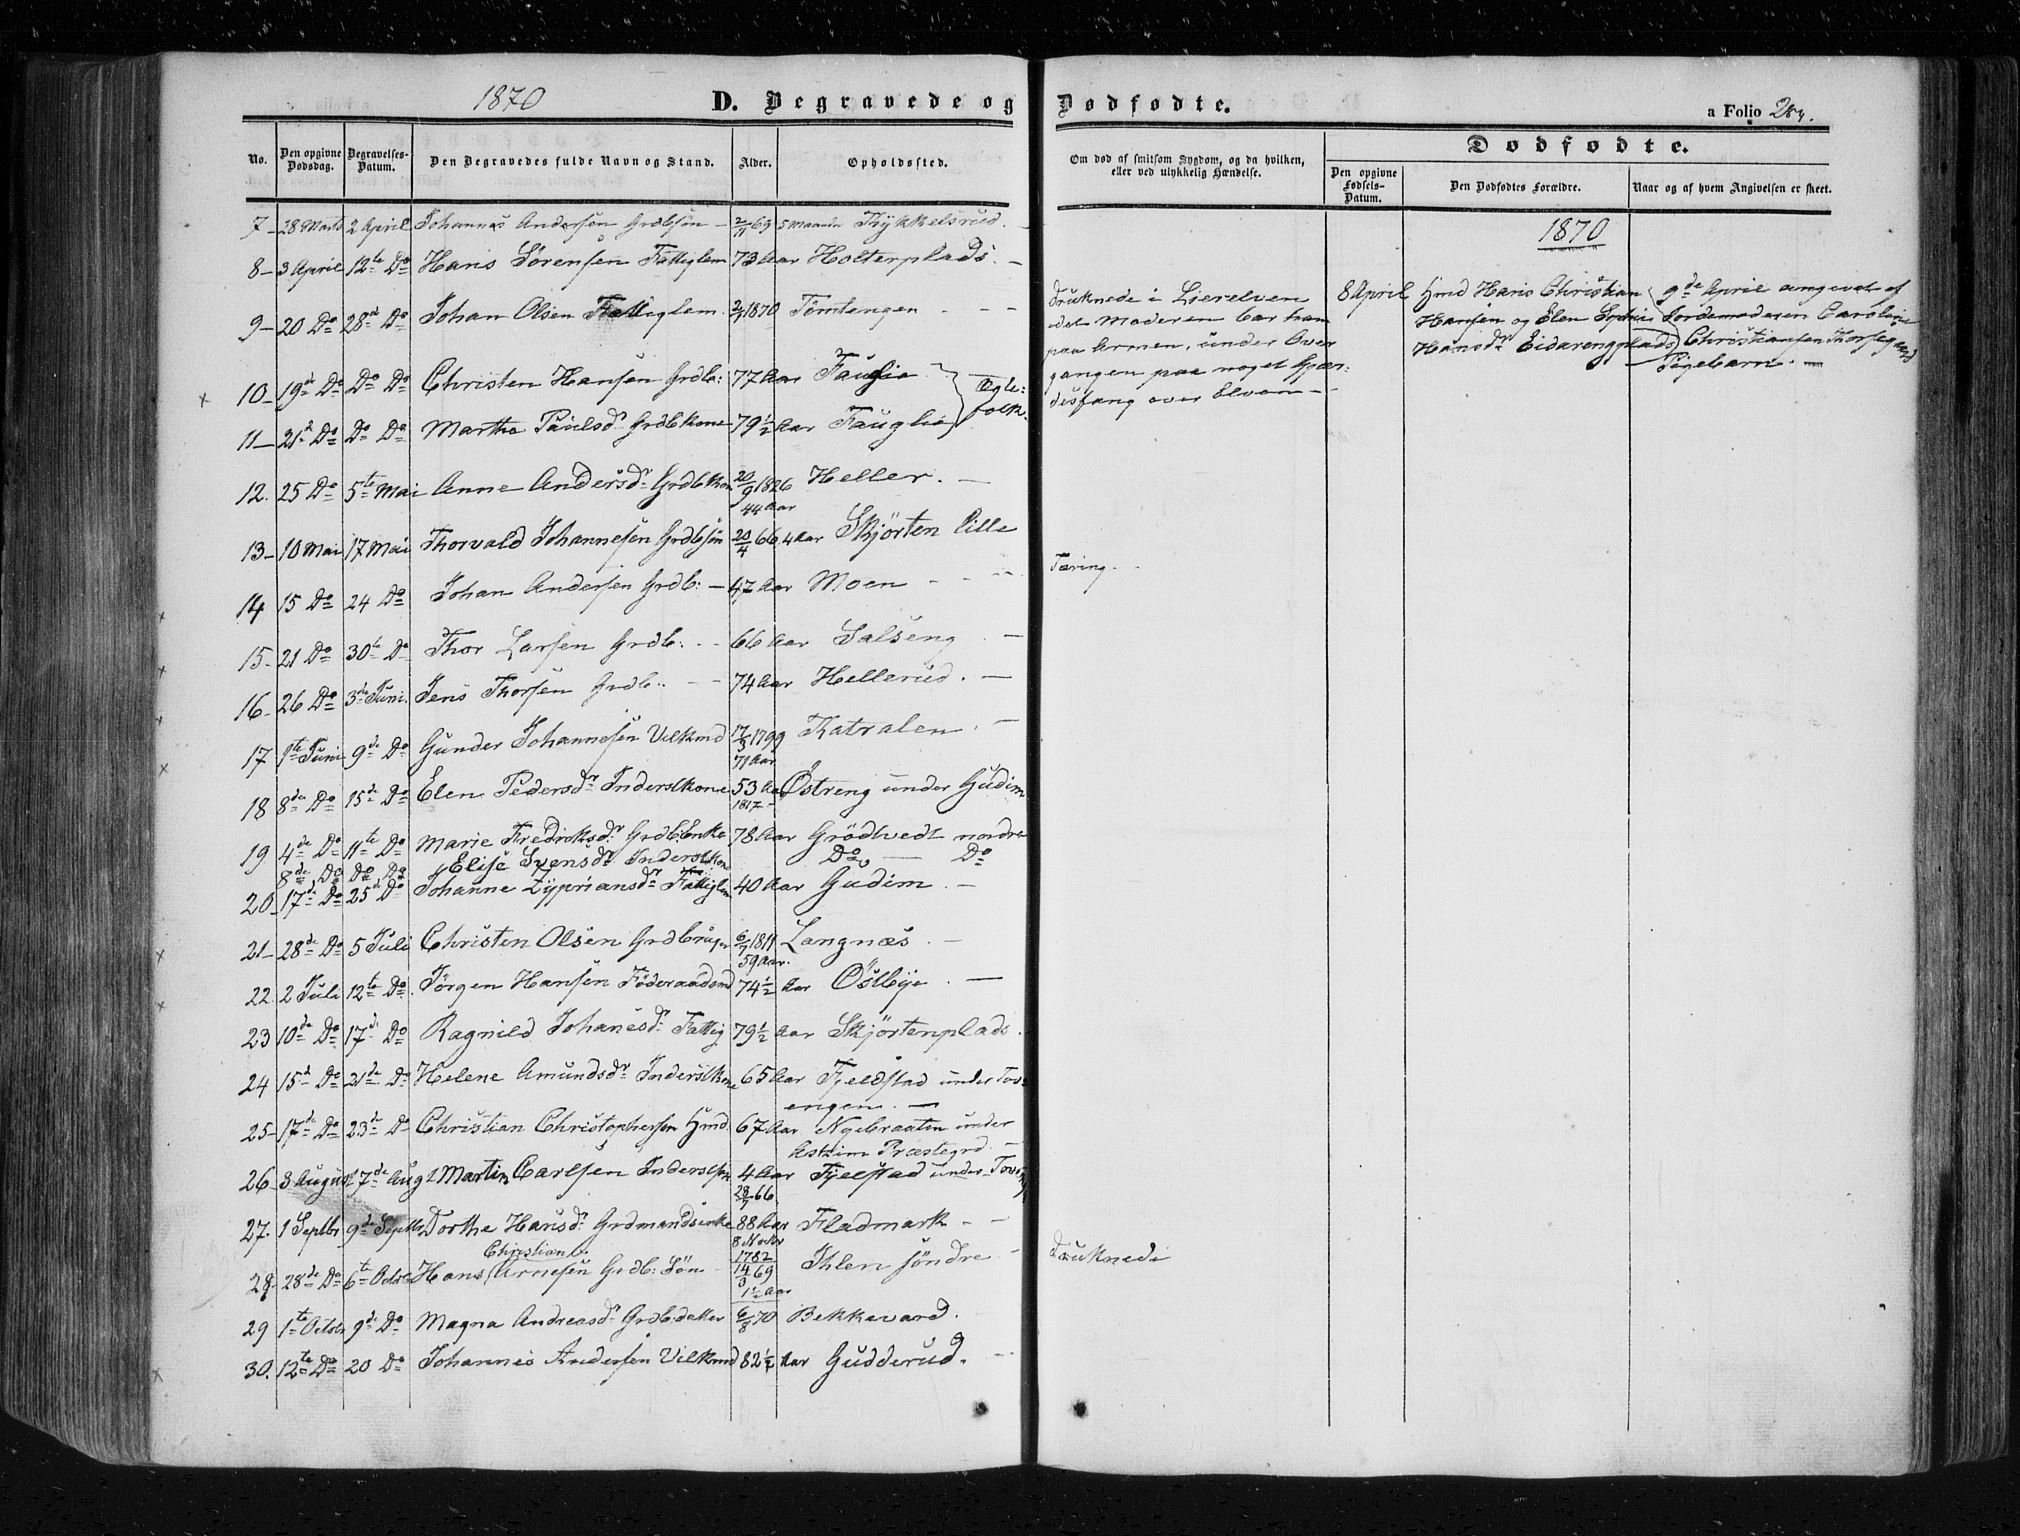 1870 D. Begravede og Dødfødte. a Folio
No. Den opgivne Dødsdag. Begravelses-Datum. Den Begravedes fulde Navn og Stand. Alder. Opholdssted.
Om død af smitsom Sygdom, og da hvilken, eller ved ulykkelig Hændelse.
Dødfødte.
Den opgivne Fødsels-Datum. Den Dødfødtes Forældre. Naar og af hvem Angivelsen er skeet.
7 – 28 Marts 2 April Johannes Andersen Grdbsøn – 2/11 69 5 Maaneder Thykkelsrud.
8 – 3 April 12te Do Hans Sørensen Fattiglem 73 Aar Holterplads. –
9 – 20 Do 28de Do Johan Olsen Fattiglem. 2/4 1870 Tomtengen – – –
10 – 19de Do Do Do Christen Hansen Grdb: 77 Aar Fauglie } Ægte-
11 – 21de Do Do Do Marthe Paulsdr Grdbkone 79½ Aar Fauglie } folk.
12. 25 Do 5te Mai Anne Andersdr Grdbkon 20/9 1826 Heller. –
44 Aar
13 – 10 Mai 17 Mai Thorvald Johannesen Grdbsøn 20/4 66 4 Aar Skjørten lille
14 15 Do 24 Do Johan Andersen Grdb: – 47 Aar Moen – – –
15 – 21 Do 30te Do Thor Larsen Grdb: – – 66 Aar Salseng –
16 – 26 Do 3de Juni. Jens Thorsen Grdb: – – 74 Aar Hellerud. –
17 1te Juni 9de Do Gunder Johannesen Vilkmd 17/3 1799 Katralen. –
71 Aar
18 8de Do 15de Do Elen Pedersdr Inderstkone 53 Aar Østreng under Gudim
1817 –
19 4de Do 11te Do Marie Fredriksdr Grdb:Enke 78 Aar Grødtvedt nordre
8de Do Do Do Elise Svensdr Inderstkon Do – Do
20 17de Do 25de Do Johanne Zypriansdr Fattiglem 40 Aar Gudim. –
21 – 28de Do 5 Juli Christen Olsen Grdbruger 6/7 1811 Langnæs. –
59 Aar.
22. 2 Juli 12te Do Jørgen Hansen Föderaadsmd 74½ Aar Østbye. –
23 10de Do 17de Do Ragnild Johanesdr Fattig 79½ Aar Skjørtenplads.
24 15de Do 21de Do Helene Amundsdr Inderstkone 65 Aar Fjeldstad under Tov-
engen. –
25 – 17de Do 23de Do Christian Christophersen Hmd. 67 Aar Nyebraaten under
Askim Præstegrd. –
26 – 3 August 17de Aug Martin Carlsen Inderstsøn 4 Aar Fjelstad under Toven
28/7 66.
27. 1 Septbr 9de Septbr Dorthe Hansdr Grdmandsenke 88 Aar Fladmark – –
8 Novbr
Christian 1782
28. 28de Do 6te Octbr Hans Arnesen Grdb: Søn 14/3 69 Ihlen søndre –
1½ Aar
29 1te Octobr 9de Do Magna Andreasdr Grdb:datter 6/8 70 Bekkevard.
30. 12te Do 20 Do Johannes Andersen Vilkmd 82½ Aar Gudderud. –
druknede i Lierelven
idet Moderen bar ham
paa Armen, under Over
gangen paa noget Gjær-
desfang over Elven –
Tæring. –
druknede
1870
8 April Hmd Hans Christian
Hansen og Elen Sophie
Hansdr Eidarengplads
9de April angivet af
Jordemoderen Caroline
Christiansen Thorseg
Pigebarn. –